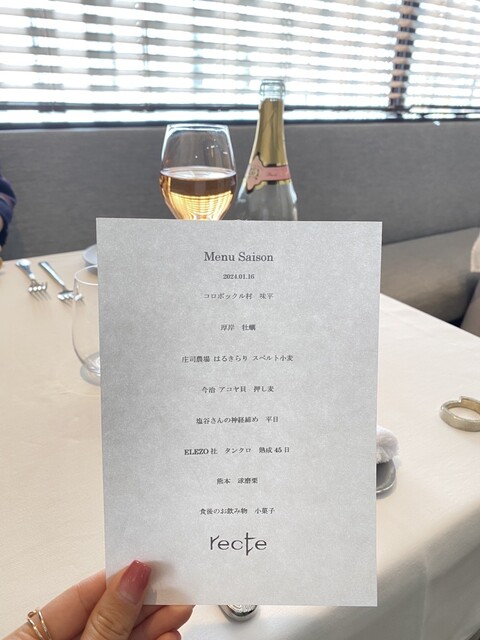 Menu Saison
2024.01.16
コロボックル村 味平
厚岸 牡蠣
庄司農場 はるきらり スペルト小麦
今治 アコヤ貝 押し麦
塩谷さんの神経締め 平目
ELEZO社 タンクロ 熟成45日
熊本 球磨栗
食後のお飲み物 小菓子
recte